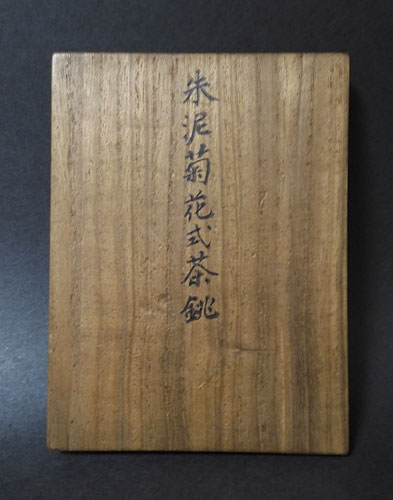 朱泥菊花式茶銚